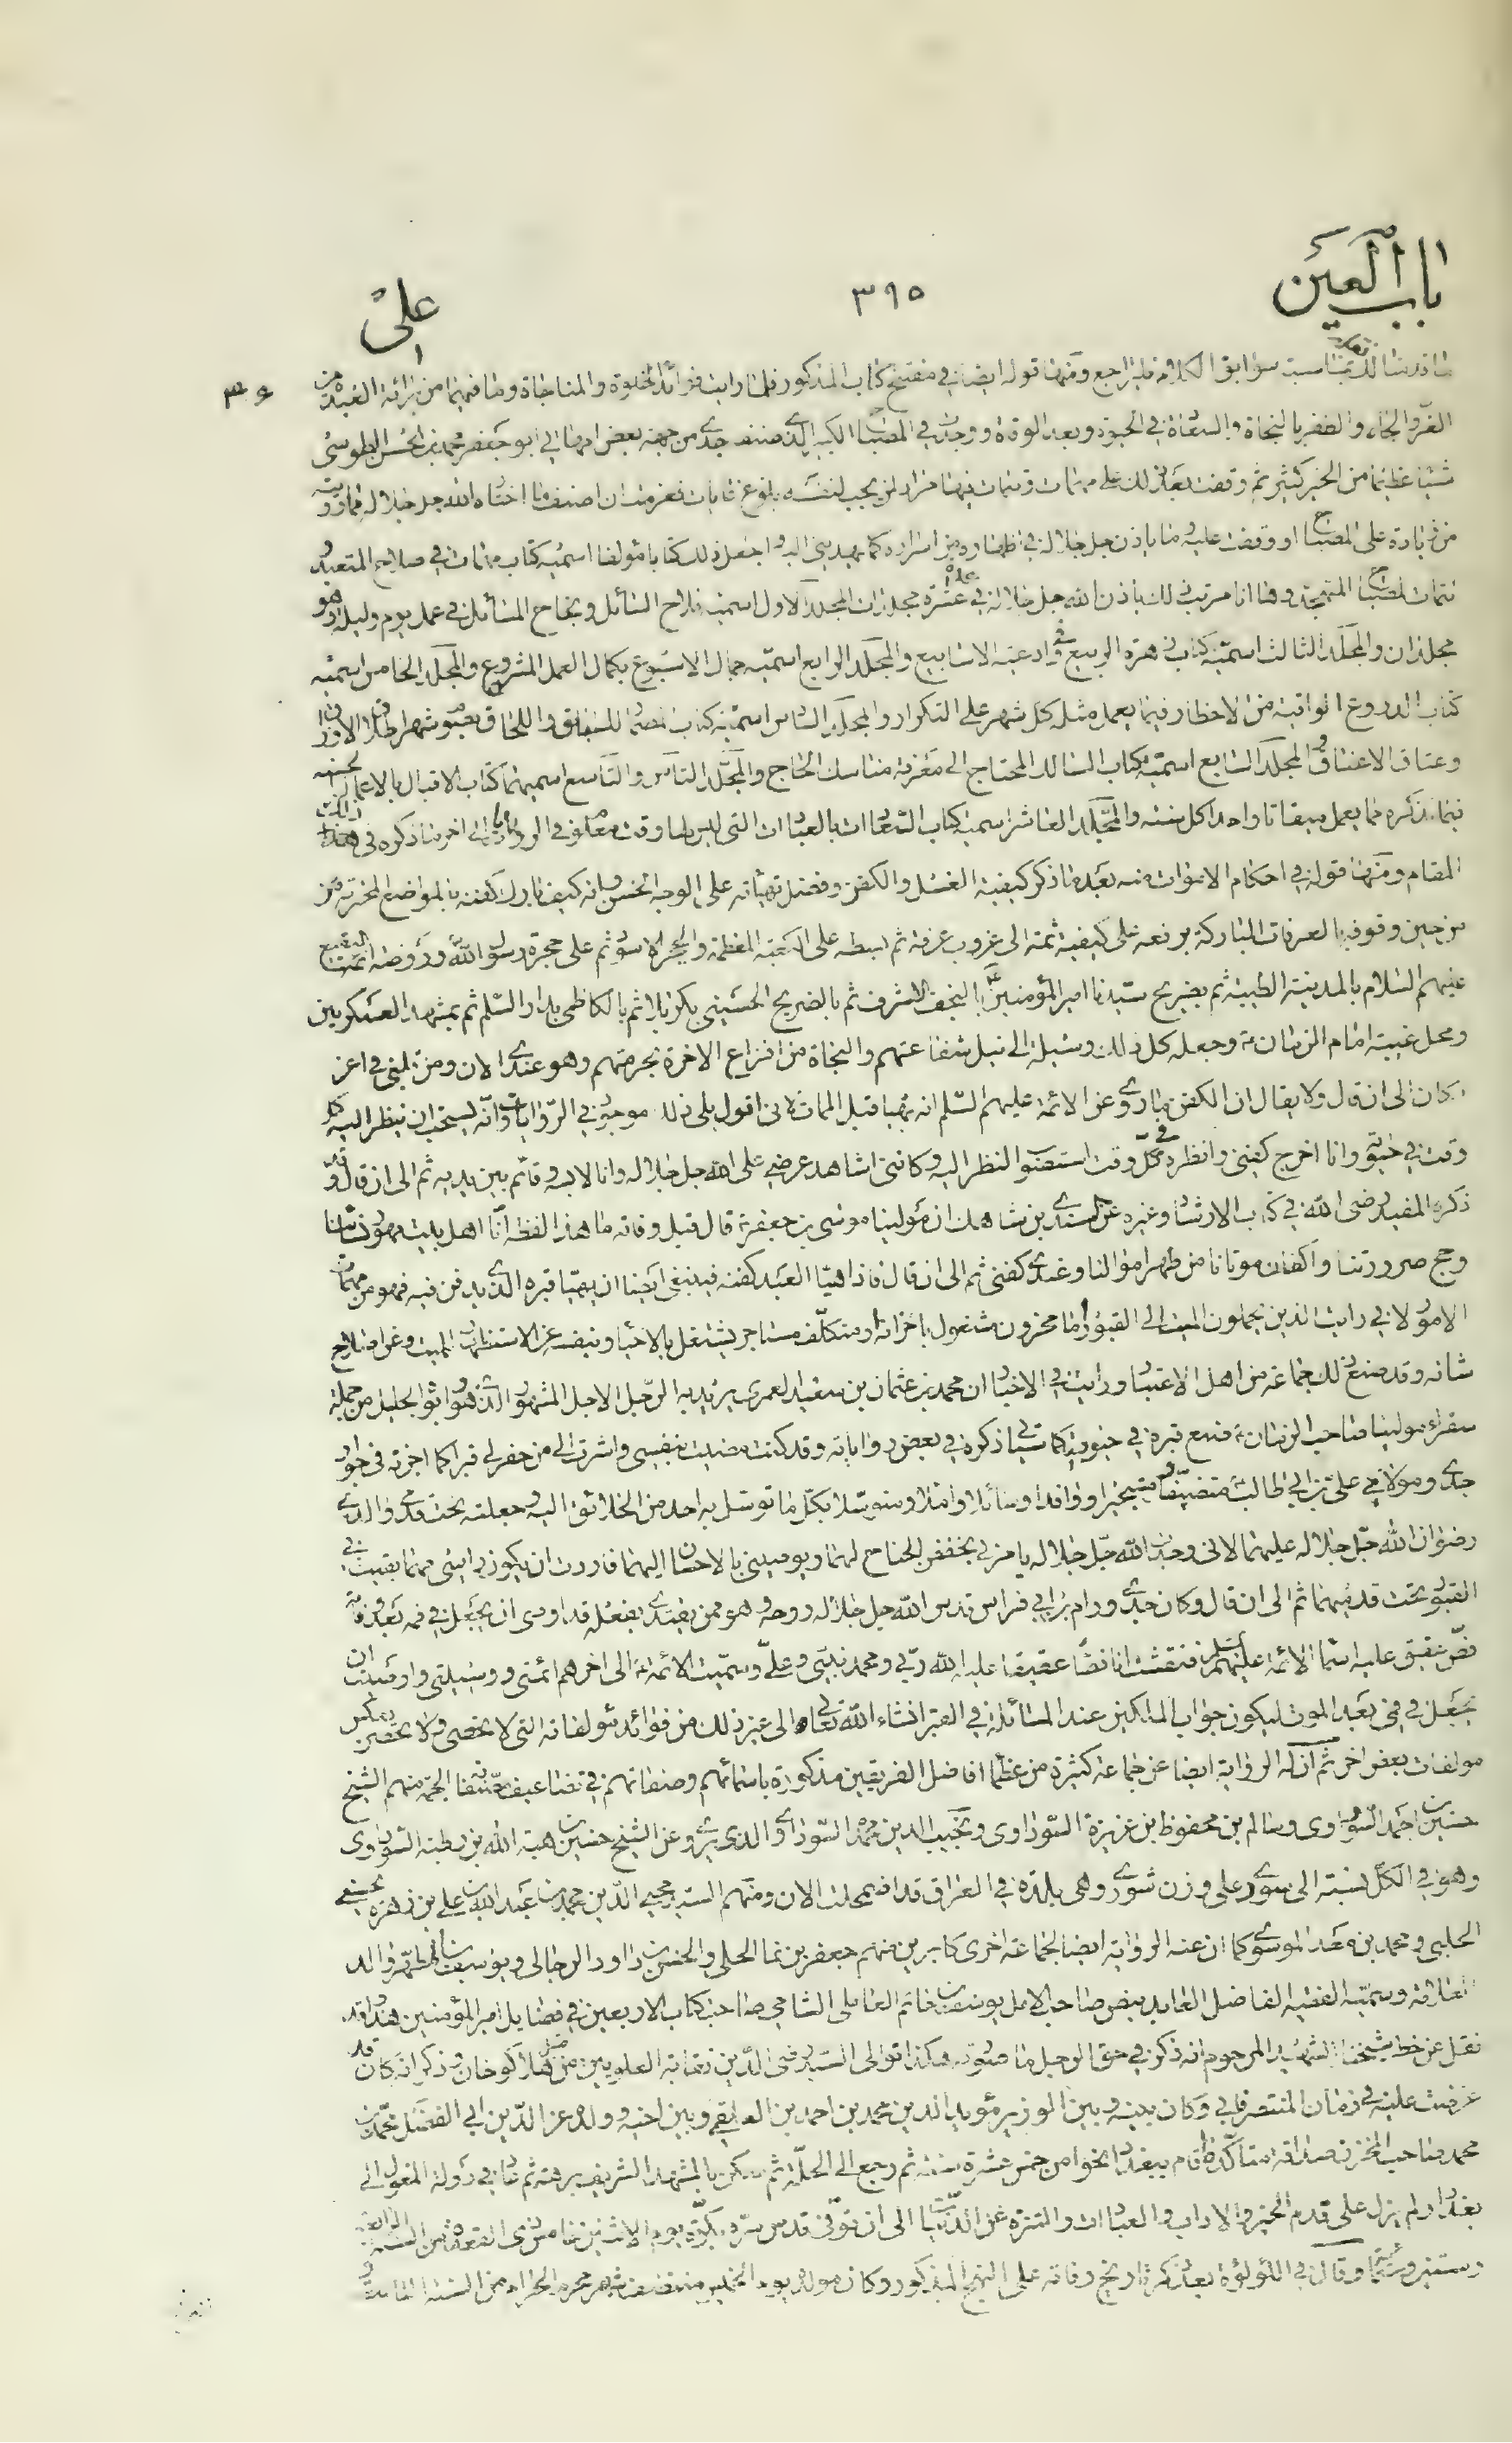 باب العين
٣٩٥
علي
سوابق الكلام فليراجع ومنها قوله ايضا في مفتتح كتاب المذكور فلما رايت فوائد الخلوة والمناجاة وما فيهما من
والظفر بالنجاة والسعادة في الحيوة وبعد الوفاة ووجدت في المصباح الكبير الذي صنفه جدي من جهة بعض امهاتي ابو جعفر محمد بن الحسن الطوسي
شيئا عظيما من الخير كثير ثم وقفت بعد ذلك على مهمات وتتمات فيها مراد لمن يحب لنفسه بلوغ غايات فعزمت ان اصنف ما اختاره الله جل جلاله مما رويته
من زيادة على المصباح او وقفت عليه ما ياذن جل جلاله في اظهاره من اسراره كما يهديني اليه واجعل ذلك كتابا مؤلفا اسميه كتاب مهمات في صلاح المتعبد و
تتمات لمصباح المتهجد وها انا مرتب ذلك باذن الله جل جلاله في عدة عشرة مجلدات المجلد الاول اسميته فلاح السائل ونجاح المسائل في عمل يوم وليلة وهو
مجلدان والمجلد الثالث اسميته كتاب زهرة الربيع في ادعية الاسابيع والمجلد الرابع اسميته جمال الاسبوع بكمال العمل المشروع والمجلد الخامس اسميته
كتاب الدروع الواقية من الاخطار فيما يعمل مثله كل شهر على التكرار والمجلد السادس اسميته كتاب المضمار للسباق واللحاق بصوم شهر اطلاق الارزاق
وعتاق الاعناق والمجلد السابع اسميته كتاب السالك المحتاج الى معرفة مناسك الحاج والمجلد الثامن والتاسع اسميتهما كتاب الاقبال بالاعمال الحسنة
فيما نذكره مما يعمل ميقاتا واحدا كل سنة والمجلد العاشر اسميته كتاب السعادات بالعبادات التي ليس لها وقت معلوم في الروايات الى اخر ما ذكره في هذا
المقام ومنها قوله في احكام الاموات منه بعد ما ذكر كيفية الغسل والكفن وفضل تهيئاته على الوجه الحسن وانه كيف بارك كفنه بالمواضع المحترمة من
من حين وقوفه بالعرفات المباركة برفعه على كيفية ثمة الى غروب عرفة ثم بسطه على الكعبة المعظمة والحجر الاسود ثم على حجرة رسول الله وروضة ائمة البقيع
عليهم السلام بالمدينة الطيبة ثم بضريح سيدنا امير المؤمنين بالنجف الاشرف ثم بالضريح الحسيني بكربلا ثم بالكاظمي بدار السلم ثم بمشهد العسكريين
ومحل غيبة امام الزمان وجعله كل ذلك وسيلة الى نيل شفاعتهم والنجاة من افزاع الاخرة بحرمتهم وهو عندي الان ومن مهمي في اعز
مكان الى ان قال ولا يقال ان الكفن ما روي عن الائمة عليهم السلم انه يهيا قبل الممات لاني اقول بلى ذلك موجود في الروايات وانه يستحب ان ينظر اليه كل
وقت في حيوته وانا اخرج كفني وانظره في كل وقت استصوب النظر اليه وكانني اشاهد عرضي على الله جل جلاله وانا لابسه وقائم بين يديه ثم الى ان قال وقد
ذكره المفيد رضي الله في كتاب الارشاد وغيره عن السندي بن شاهك ان مولينا موسى بن جعفر قال قبل وفاته ما هذا لفظه انا اهل بيت مهور نسائنا
وحج صرورتنا واكفان موتانا من طهر اموالنا وعندي كفني ثم الى ان قال فاذا هيا العبد كفنه فينبغي ايضا ان يهيئا قبره الذي يدفن فيه فهو من مهمات
الامور لاني رايت الذين يحملون الميت الى القبور اما محزون مشغول باحزانه او متكلف مستاجر يشتغل بالاحياء ويغفل عن الاستظهار للميت وعن اصلاح
شانه وقد صنع ذلك جماعة من اهل الاعتبار ورايت في الاخبار ان محمد بن عثمان بن سعيد العمري يريد به الرجل الاجل المشهور الذي هو الثقة الجليل من جملة
سفراء مولينا صاحب الزمان صنع قبره في حيوته كما سياتي ذكره في بعض رواياته وقد كنت مضيت بنفسي واشرت الى من حفر لي قبرا كما اخترته في جوار
جدي ومولاي علي بن ابي طالب متضيفا ومستجيرا ووافدا وسائلا واملا ومتوسلا بكل ما توسل به احد من الخلائق اليه وجعلته تحت قدمي والدي
رضوان الله جل جلاله عليهما لاني وجدت الله جل جلاله يامرني بخفض الجناح لهما ويوصيني بالاحسان اليهما فاردت ان يكون راسي مهما بقيت في
القبور تحت قدميهما ثم الى ان قال وكان جدي ورام بن ابي فراس قدس الله جل جلاله روحه وهو ممن يقتدى بفعله قد اوصى ان يجعل في فمه بعد وفاته
فص عقيق عليه اسماء الائمة عليهم السلم فنقشت انا فصا عقيقا عليه الله ربي ومحمد نبيي وعلي وسميت الائمة الى اخرهم ائمتي ووسيلتي واوصيت ان
يجعل في فمي بعد الموت ليكون جواب الملكين عند المسائلة في القبر انشاء الله تعالى الى غير ذلك من فوائد مؤلفاته التي لا تحصى ولا تحصر
مولفات بعض اخر ثم ان له الرواية ايضا عن جماعة كثيرة من عظماء افاضل الفريقين مذكورة باسمائهم وصفاتهم في تضاعيف مصنفاته الجمة منهم الشيخ
حسين بن احمد السوراوي وسالم بن محفوظ بن عزيزة السوراوي ونجيب الدين محمد السوراوي والذي يروي عن الشيخ حسين بن هبة الله بن رطبة السوراوي
وهو في الكل نسبة الى سورى على وزن شورى وهي بلدة في العراق قد اضمحلت الان ومنهم السيد محيي الدين محمد بن عبد الله بن علي بن زهرة الحسيني
الحلبي ومحمد بن معد الموسوي كما ان عنه الرواية ايضا لجماعة اخرى كابرين منهم جعفر بن نما الحلي والحسن بن داود الرجالي ويوسف بن المطهر والد
العلامة وسميه الفقيه الفاضل العابد يوسف بن حاتم العاملي الشامي صاحب كتاب الاربعين في فضايل امير المؤمنين هذا وقد
نقل عن خط شيخنا الشهيد المرحوم انه ذكر في حق الرجل ما صورته وكذا تولى السيد رضي الدين نقابة العلويين من هلاكو خان وذكر انه كان قد
عرضت عليه في زمان المنتصر فابى وكان بينه وبين الوزير مؤيد الدين محمد بن احمد بن العلقمي وبين اخيه وولده عز الدين ابي الفضل محمد بن
محمد صاحب المخزن صداقة متاكدة اقام ببغداد نحوا من خمس عشرة سنة ثم رجع الى الحلة ثم سكن بالمشهد الشريف برهة ثم عاد في دولة المغول الى
بغداد ولم يزل على قدم الخير والاداب والعبادات والتنزه عن الدنيا الى ان توفي قدس سره بكرة يوم الاثنين خامس ذي القعدة من السنة الرابعة
وستين وستمائة وقال في اللؤلؤة بعد ذكر تاريخ وفاته على النهج المذكور وكان مولده يوم الخميس منتصف شهر محرم الحرام من السنة التاسعة و